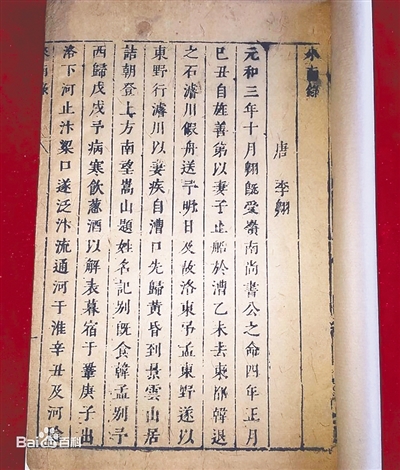 來南錄
唐 李翱
元和三年十月翱既受嶺南尚書公之命四年正月
已丑自旌善第以妻子止船於漕乙未去東都韓退
之石濬川假舟送予明日及故洛東弔孟東野遂以
東野行濬川以妻疾自漕口先歸黃昏到景雲山居
詰朝登上方南望嵩山題姓名記別既食韓孟別予
西歸戊戌予病寒飲蔥酒以解表暮宿于鞏庚子出
洛下河止汴梁口遂泛汴流通河于淮辛丑及河陰
Baidu百科